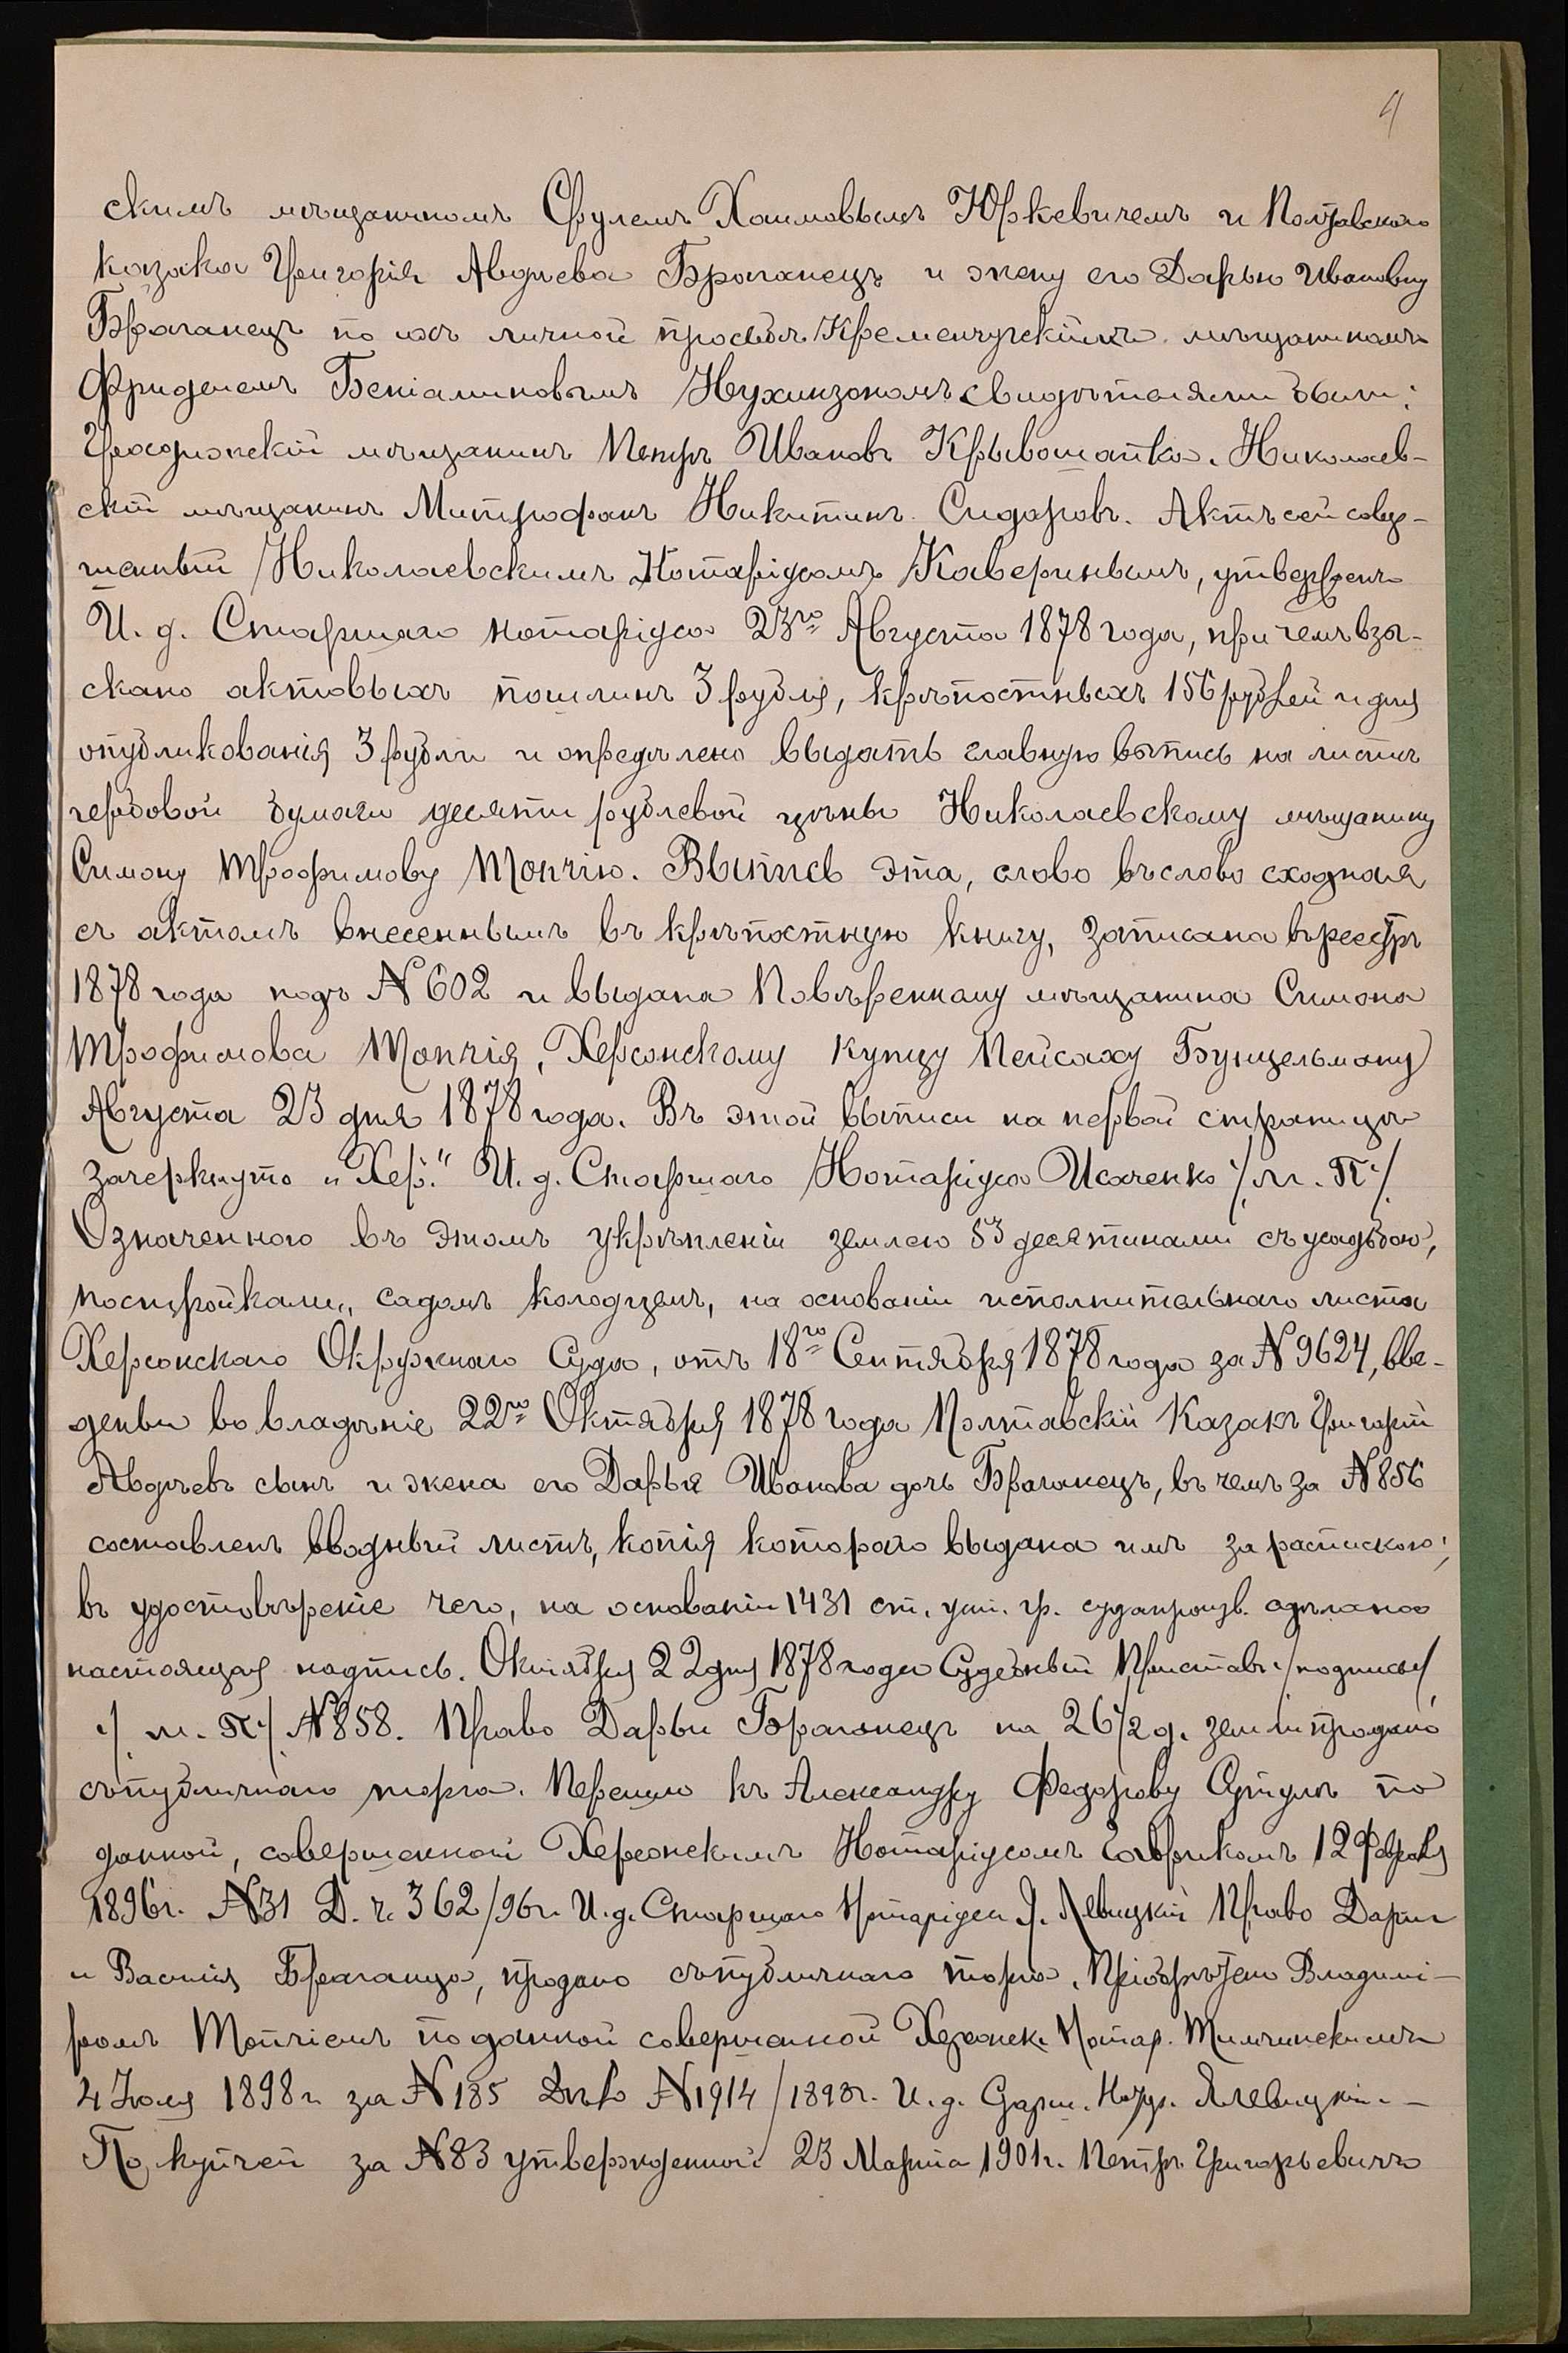 4
скимъ мѣщаниномъ Срулемъ Хаимовымъ Юркевичемъ и Полтавскаго
казака Григорія Авдѣева Браганецъ и жену его Дарью Ивановну
Браганецъ по ихъ личной просьбѣ Кременчугскимъ мѣщаниномъ
Фриделемъ Беніаминовымъ Нухимзономъ свидѣтелями были:
мѣщанинъ Петръ Ивановъ Крывошапко. Николаев-
скій мѣщанинъ Митрофанъ Никитинъ Сидоровъ. Актъ сей совер-
шенный Николаевскимъ Нотаріусомъ Каверинымъ, утвержденъ
И. д. Старшаго нотаріуса 23го Августа 1878 года, при чемъ взы-
скано актовыхъ пошлинъ 3 рубля, крѣпостныхъ 156 рублей и для
опубликованія 3 рубли и опредѣлено выдать главную выпись на листѣ
гербовой бумаги десяти рублевой цѣны Николаевскому мѣщанину
Симону Трофимову Топчію. Выпись эта, слово въ слово сходная
съ актомъ внесеннымъ въ крѣпостную книгу, записана въ реестръ
1878 года подъ N 602 и выдана Повѣренному мѣщанина Симона
Трофимова Топчія, Херсонскому купцу Пейсаху Бунцельману
Августа 23 дня 1878 года. Въ этой выписи на первой страницѣ
зачеркнуто „Хер." И. д. Старшаго Нотаріуса Исаченко /м. П./
Означенного въ этомъ укрѣпленіи землею 53 десятинами съ усадьбою,
постройками, садомъ колодцемъ, на основаніи исполнительнаго листа
Херсонскаго Окружнаго Суда, отъ 18го Сентября 1878 года за N 9624, вве-
дены во владѣніе 22го Октября 1878 года Полтавскій Казакъ Григорій
Авдѣевъ сынъ и жена его Дарья Иванова дочь Браганецъ, въ чемъ за N 856
составленъ вводный листъ, копія котораго выдана имъ за распискою;
въ удостовѣреніе чего, на основаніи 1431 ст. уст. гр. судопроизв. сдѣлана
настоящая надпись. Октября 22 дня 1878 года Судебный Приставъ /подпись/
/м. П./ N 858. Право Дарьи Браганецъ на 26 1/2 д. земли продано
съ публичнаго торга. Перешло къ Александру Федорову по
данной, совершенной Херсонскимъ Нотаріусомъ Гавриковъ 12 Февраля
1896г. N31 Д. ч. 362/96г. И. д. Старшаго Нотаріуса Я. Левицкій Право Дарьи
и Василія Браганца, продано съ публичнаго торга. Пріобрѣтено Владимі-
ромъ Топчіемъ по данной совершенной Херсонск. Нотар. Тимчинскимъ
4 Іюля 1898 г. за N 185 Дѣло N 1914/1898г. И. д. Старш. Нотар. Я Левицкій. –
По купчей за N 83 утвержденной 23 Марта 1901 г. Петръ Григорьевичъ